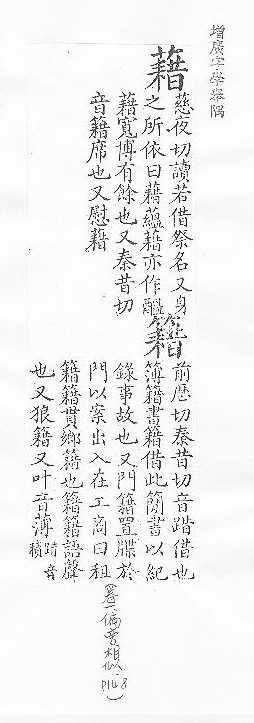 增廣字學舉隅
藉
慈夜切讀若借祭名又身
之所依曰藉蘊藉亦作醞
藉寬博有餘也又秦昔切
音籍席也又慰藉
籍
前歷切秦昔切音踖借也
簿籍書籍借此簡書以紀
錄事故也又門籍置牒於
門以案出入在工商曰租
籍籍貫鄉籍也籍籍語聲
也又狼籍又叶音薄
踖音
積
偏旁相似
P148